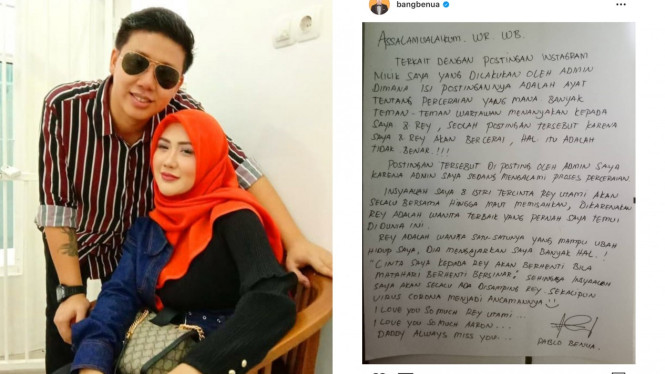 bangbenua
ASSALAMUALAIKUM. WR. WB.
TERKAIT DENGAN POSTINGAN INSTAGRAM
MILIK SAYA YANG DILAKUKAN OLEH ADMIN
DIMANA ISI POSTINGANNYA ADALAH AYAT
TENTANG PERCERAIAN YANG MANA BANYAK
TEMAN-TEMAN WARTAWAN MENANYAKAN KEPADA
SAYA & REY, SEOLAH POSTINGAN TERSEBUT KARENA
SAYA & REY AKAN BERCERAI, HAL ITU ADALAH
TIDAK BENAR!!!
POSTINGAN TERSEBUT DI POSTING OLEH ADMIN SAYA
KARENA ADMIN SAYA SEDANG MENGALAMI PROSES PERCERAIAN.
INSYAALLAH SAYA & ISTRI TERCINTA REY UTAMI AKAN
SELALU BERSAMA HINGGA MAUT MEMISAHKAN, DIKARENAKAN
REY ADALAH WANITA TERBAIK YANG PERNAH SAYA TEMUI
DI DUNIA INI.
REY ADALAH WANITA SATU-SATUNYA YANG MAMPU UBAH
HIDUP SAYA, DIA MENGAJARKAN SAYA BANYAK HAL.
"CINTA SAYA KEPADA REY AKAN BERHENTI BILA
MATAHARI BERHENTI BERSINAR", SEHINGGA INSYAALLAH
SAYA AKAN SELALU ADA DISAMPING REY SEKALIPUN
VIRUS CORONA MENJADI ANCAMANNYA
I LOVE YOU SO MUCH REY UTAMI...
I LOVE YOU SO MUCH AARON...
DADDY ALWAYS MISS YOU...
PABLO BENUA.